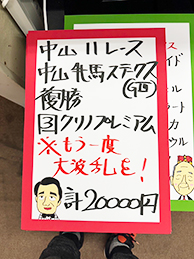 中山11レース
中山牝馬ステークス
(GⅢ)
複勝
③クリノプレミアム
※もう一度
大波乱を!
計20000円